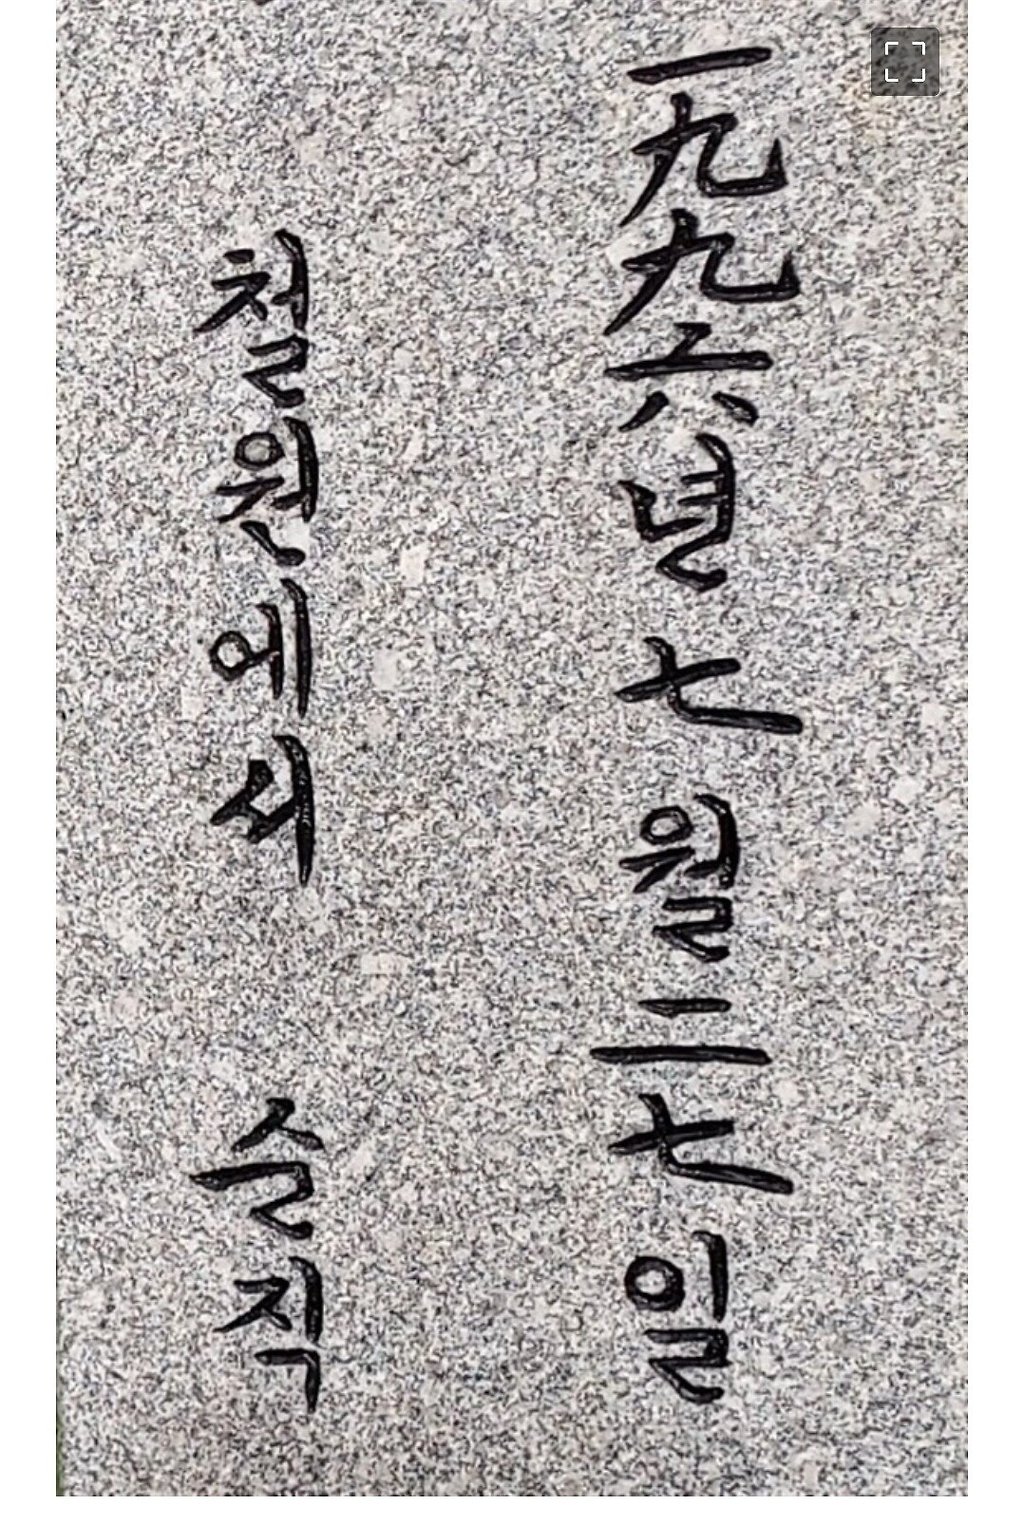 一九九六년 七월 二七일
철원에서 순직